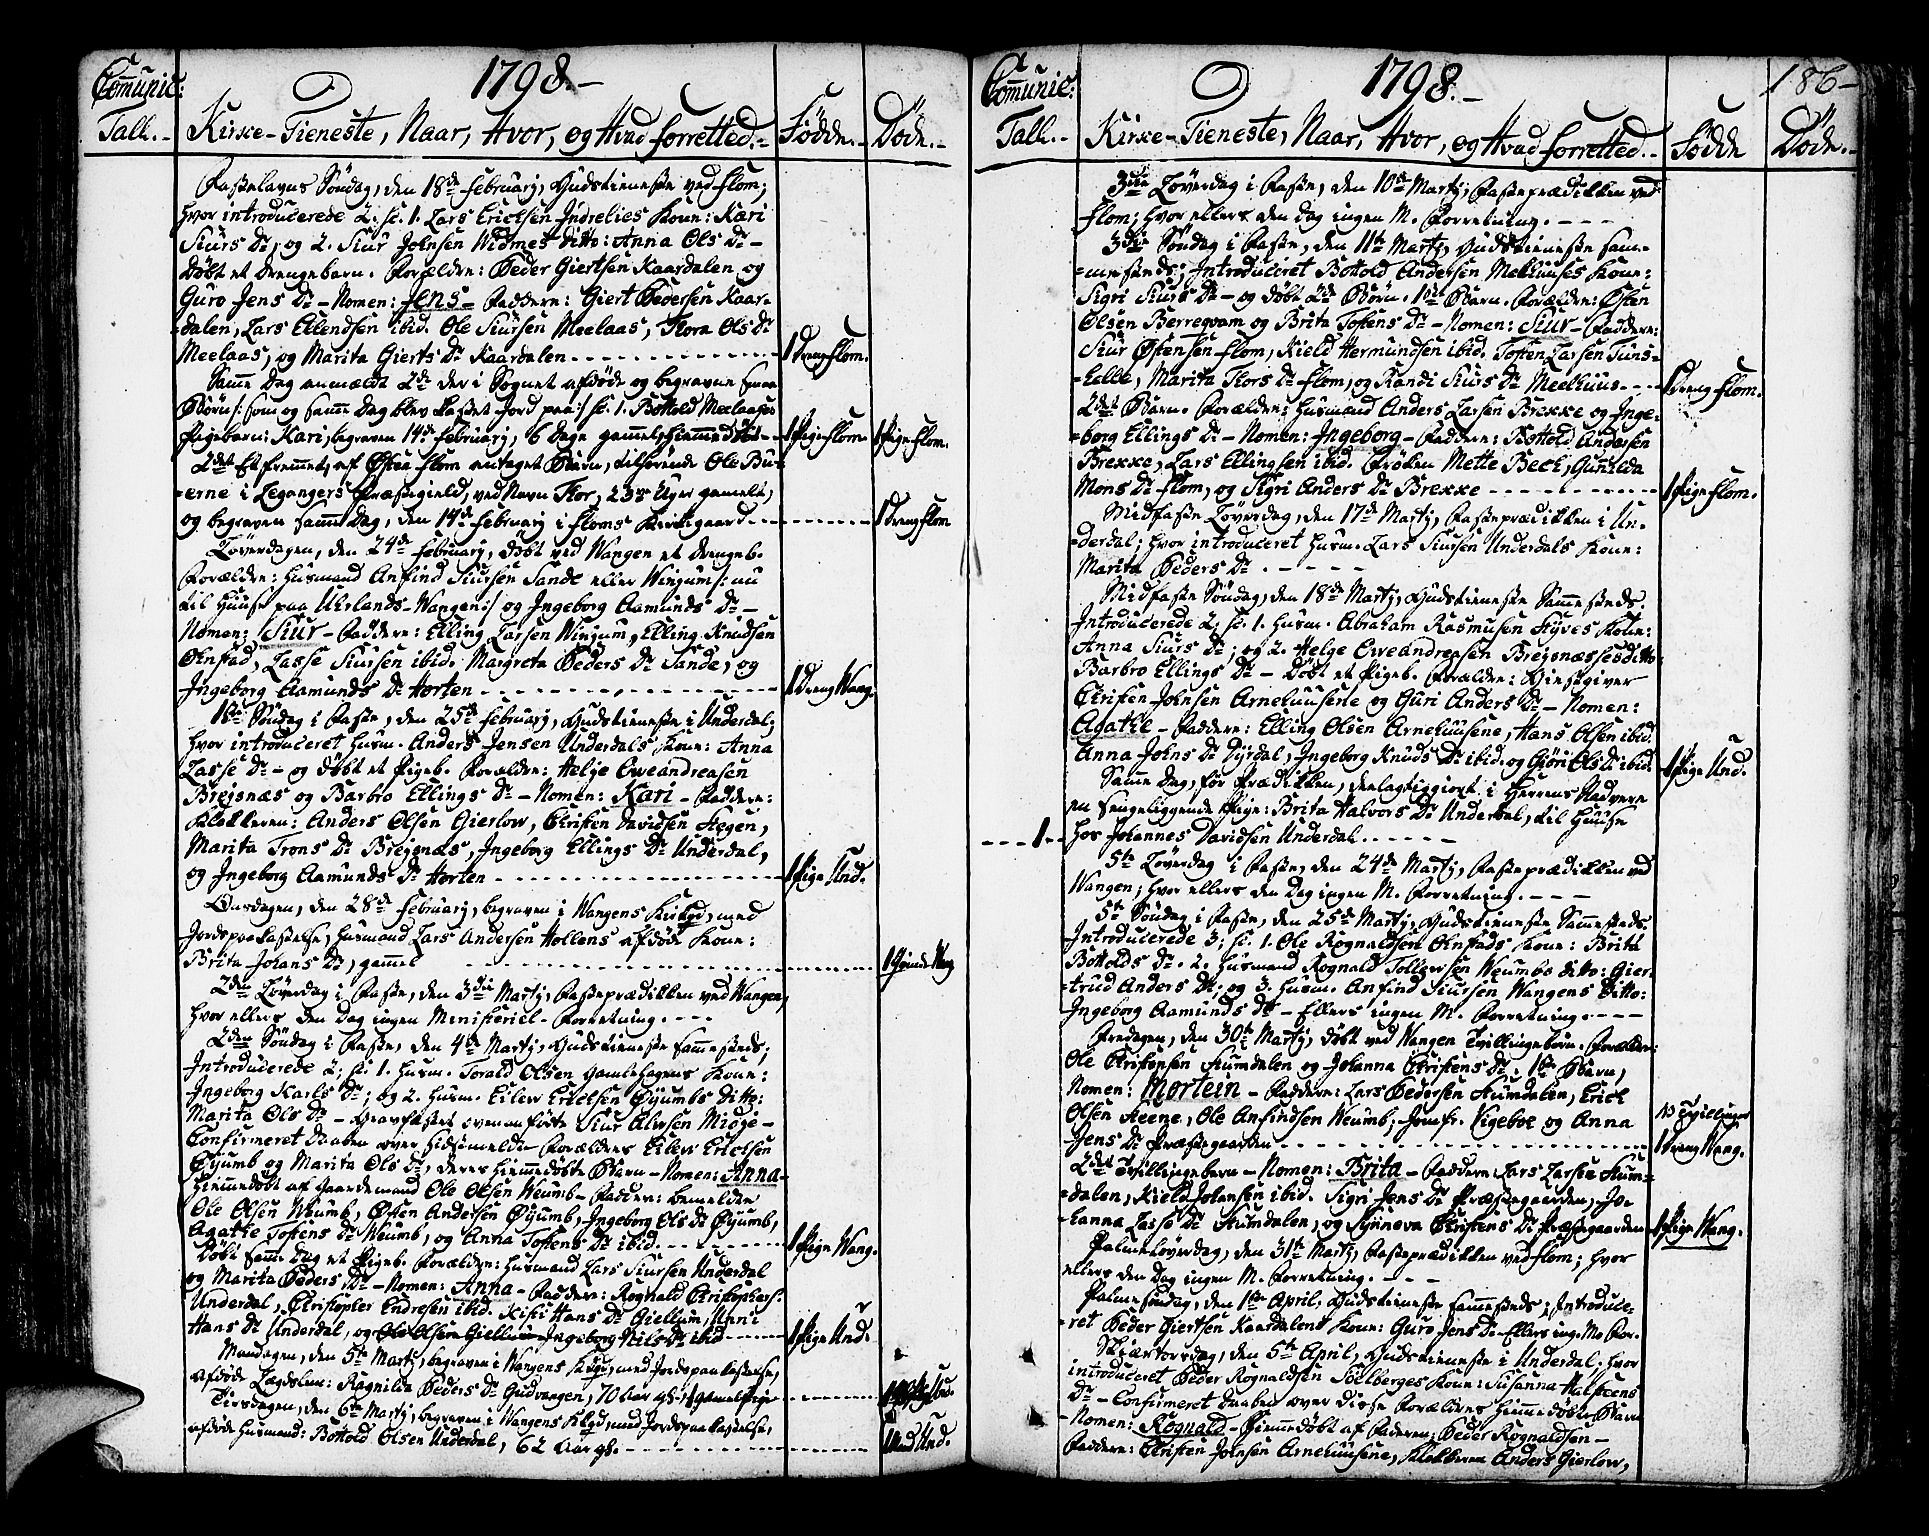 Comunic: 1798.-
Tall.- Kirke-Tieneste, Naar, Hvor, og Hvad forretted.- Födde.- Döde.-
Fastelavns Söndag, den 18de Februarij, Gudstieneste ved Flom;
hvor introducerede 2; sc. 1. Lars Erichsen Indrelies Kone: Kari
Siurs Dr, og 2. Siur Johnsen Widmes ditto: Anna Ols Dr-
Döbt et Drengebarn. Forældre: Peder Giertsen Kaardalen og
Guro Jens Dr - Nomen: Jens - Faddere: Giert Pedersen Kaar-
-dalen, Lars Ellendsen ibid. Ole Siursen Meelaas, Thora Ols Dr
Meelaas, og Marita Gierts Dr Kaardalen - - - 1 Dreng Flom.
Samme Dag anmældt 2de her i Sognet afdöde og begravne smaae
Börn /: som og samme Dag blev kastet Jord paa :/ sc. 1. Bottold Meelaases
Pigebarn: Kari, begraven 14de Februarij, 6 Dage gammel, hiemmedöbt - 1 Pige Flom. 1 Pige Flom.
2det Et fremmet, af Østen Flom antaget Barn, tilhörende Ole
-erne i Leganger Præstegield, ved Navn Thor, 23 Uger gammelt,
og begraven samme Dag, den 14de Februarij i Floms Kirkegaard - - - 1 Dreng Flom
Löverdagen, den 24de Februarij, döbt ved Wangen et Drengeb.
Forældre: Husmand Anfind Siursen Sande eller Winjum /: nu
til Huuse paa Uhrlands-Wangen :/ og Ingeborg Aamunds Dr -
Nomen: Siur - Faddere: Elling Larsen Winjum, Elling Knudsen
Ohnstad, Lasse Siursen ibid. Margreta Peders Dr Sande, og
Ingeborg Aamunds Dr Horten - - - 1 Dreng Wang.
1ste Söndag i Faste, den 25de Februarij, Gudstieneste i Underdal;
hvor introduceret Husm. Anders Jensen Underdals Kone: Anna
Lasse Dr - og döbt et Pigeb. Forældre: Helje Eweandreasen
Brejsnæs og Barbro Ellings Dr - Nomen: Kari - Faddere:
Klokkeren: Anders Olsen Gierlow, Christen Davidsen Stegen,
Marita Trons Dr Brejsnæs, Ingeborg Ellings Dr Underdal,
og Ingeborg Aamunds Dr Horten - - - 1 Pige Und.
Onsdagen, den 28de Februarij, begraven i Wangens Kirkgd, med
Jordspaakastelse, Husmand Lars Andersen Hollens afdöde Kone:
Brita Johans Dr, gammel - - - 1 Wang
2den Löverdag i Faste, den 3die Martij, Fasteprædikken ved Wangen,
hvor ellers den Dag ingen Ministeriel-Forretning. - - -
2den Söndag i Faste, den 4de Martij, Gudstieneste sammesteds;
Introducerede 2; sc. 1. Husm. Torald Olsen Gamlehagens Kone:
Ingeborg Karls Dr; og 2. Husm. Eilew Erichsen Øyumbs ditto:
Marita Ols Dr - Siur Alwsen Midje -
Confirmeret Daaben over hidsimeldte Forældres Eilew Erichsen
Øyumb og Marita Ols Dr, deres hiemmedöbte Barn - Nomen: Anna -
hiemmedöbt af Gaardemand Ole Olsen Weumb - Faddere: bemeldte
Ole Olsen Weumb, Østen Andersen Øyumb, Ingeborg Ols Dr Øyumb,
Agathe Tostens Dr Weumb, og Anna Tostens Dr ibid. - - - 1 Pige Wang.
Döbt samme Dag et Pigeb. Forældre: Husmand Lars Siursen Underdal
og Marita Peders Dr - Nomen: Anna - Faddere: Rognald Christophers:
Underdal, Christopher Endresen ibid. Kisti Hans Dr Giellum, Unni
Hans Dr Underdal, og Ole Olsen Giellum Ingeborg Nils Dr ibid - - - 1 Pige Und.
Mandagen, den 5te Martij, begraven i Wangens Kirkgd, med Jordspaakastelse,
afdöde Lægdslem: Ragnilda Peders Dr Gudvangen, 70 Aar
Tirsdagen, den 6te Martij, begraven i Wangens Kkgd, med Jordspaakastelse,
afdöde Husmand: Bottold Olsen Underdal, 62 Aar gl. - - - 1 Und.
Comunic: 1798.- 186-
Tall.- Kirke-Tieneste, Naar, Hvor, og Hvad forretted.- Födde Döde.-
3die Löverdag i Faste, den 10de Martij, Fasteprædikken ved
Flom; hvor ellers den Dag ingen M. Forretning. - - -
3die Söndag i Faste, den 11te Martij, Gudstieneste sam-
-mesteds; Introduceret Bottold Andersen Melhuuses Kone:
Sigri Siurs Dr - og döbt 2de Börn. 1ste Barn. Forældre: Østen
Olsen Berreqvam og Brita Tostens Dr - Nomen: Siur - Faddere:
Siur Østensen Flom, Kield Hermundsen ibid. Tosten Larsen Tuns-
-helle, Marita Thors Dr Flom, og Randi Siurs Dr Meelhuus - - - 1 Dreng Flom.
2det Barn. Forældre: Husmand Anders Larsen Brekke og Inge-
-borg Ellings Dr - Nomen: Ingeborg - Faddere: Bottold Andersen
Brekke, Lars Ellingsen ibid. Fröken Mette Bech, Gunilda
Mons Dr Flom, og Sigri Anders Dr Brekke - - - 1 Pige Flom.
Midfaste Löverdag, den 17de Martij, Fasteprædikken i Un-
-derdal; hvor introduceret Husm. Lars Siursen Underdals Kone:
Marita Peders Dr - - -
Midfaste Söndag, den 18de Martij, Gudstieneste sammesteds.
Introducerede 2; sc. 1. Husm. Abraham Rasmusen Styves Kone:
Anna Siurs Dr; og 2. Helge Eweandreasen Brejsnæsses ditto:
Barbro Ellings Dr - Döbt et Pigeb. Forældre: Giestgiver
Christen Johnsen Arnehuusene og Guri Anders Dr - Nomen:
Agathe - Faddere: Elling Olsen Arnehuusene, Hans Olsen ibid.
Anna Johns Dr Dyrdal, Ingeborg Knuds Dr ibid. og Giöri Ols Dr ibid. 1 Pige Und.
Samme Dag, för Prædikken, deelagtiggiort i Herrens Nadvere
en sengeliggende Pige: Brita Halvors Dr Underdal, til Huuse
- - - 1 - - hos Johannes Davidsen Underdal - - -
5te Löverdag i Faste, den 24de Martij, Fasteprædikken ved
Wangen; hvor ellers den Dag ingen M. Forretning. - - -
5te Söndag i Faste, den 25de Martij, Gudstieneste sammesteds.
Introducerede 3; sc. 1. Ole Rognaldsen Ohnstads Kone: Brita
Bottolds Dr. 2. Husmand Rognald Tollewsen Weumbs ditto: Gier-
-trud Anders Dr; og 3. Husm. Anfind Siursen Wangens ditto:
Ingeborg Aamunds Dr - Ellers ingen M. Forretning. - - -
Fredagen, den 30te Martij, döbt ved Wangen Tvillingebörn. Forældre:
Ole Christensen Skumdalen og Johanna Christens Dr. 1ste Barn,
Nomen: Mortein - Faddere: Lars Pedersen Skumdalen, Erich
Olsen Steene, Ole Anfindsen Weumb, Jomfr. Vigeboe og Anna
Jens Dr Præstegaarden - - - NB Tvillinger 1 Dreng Wang.
2det Tvillingebarn - Nomen: Brita - Faddere: Lars Larsen Skum-
-dalen, Kield Johansen ibid. Sigri Jens Dr Præstegaarden, Jo-
-hanna Lasse Dr Skumdalen, og Synneva Christens Dr Præstegaarden 1 Pige Wang.
Palmelöverdag, den 31te Martij, Fasteprædikken ved Flom; hvor
ellers den Dag ingen M. Forretning. - - -
Palmesöndag, den 1ste April, Gudstieneste sammesteds; Introduce-
-ret Peder Giertsen Kaardalens Kone: Guro Jens Dr. Ellers ing. M. For.
Skiærtorsdag, den 5te April, Gudstieneste i Underdal; hvor
introduceret Peder Rognaldsen Sölbergs Kone: Susanna Halstens
Dr - Confirmeret Daaben over disse Forældres hiemmedöbte Barn
- Nomen: Rognald - hiemmedöbt af Faderen: Peder Rognaldsen -
Faddere: Christen Johnsen Arnehuusene, Klokkeren Anders Gierlow,